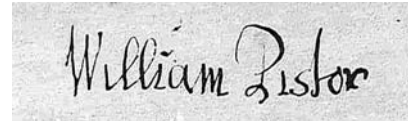 William Pistor